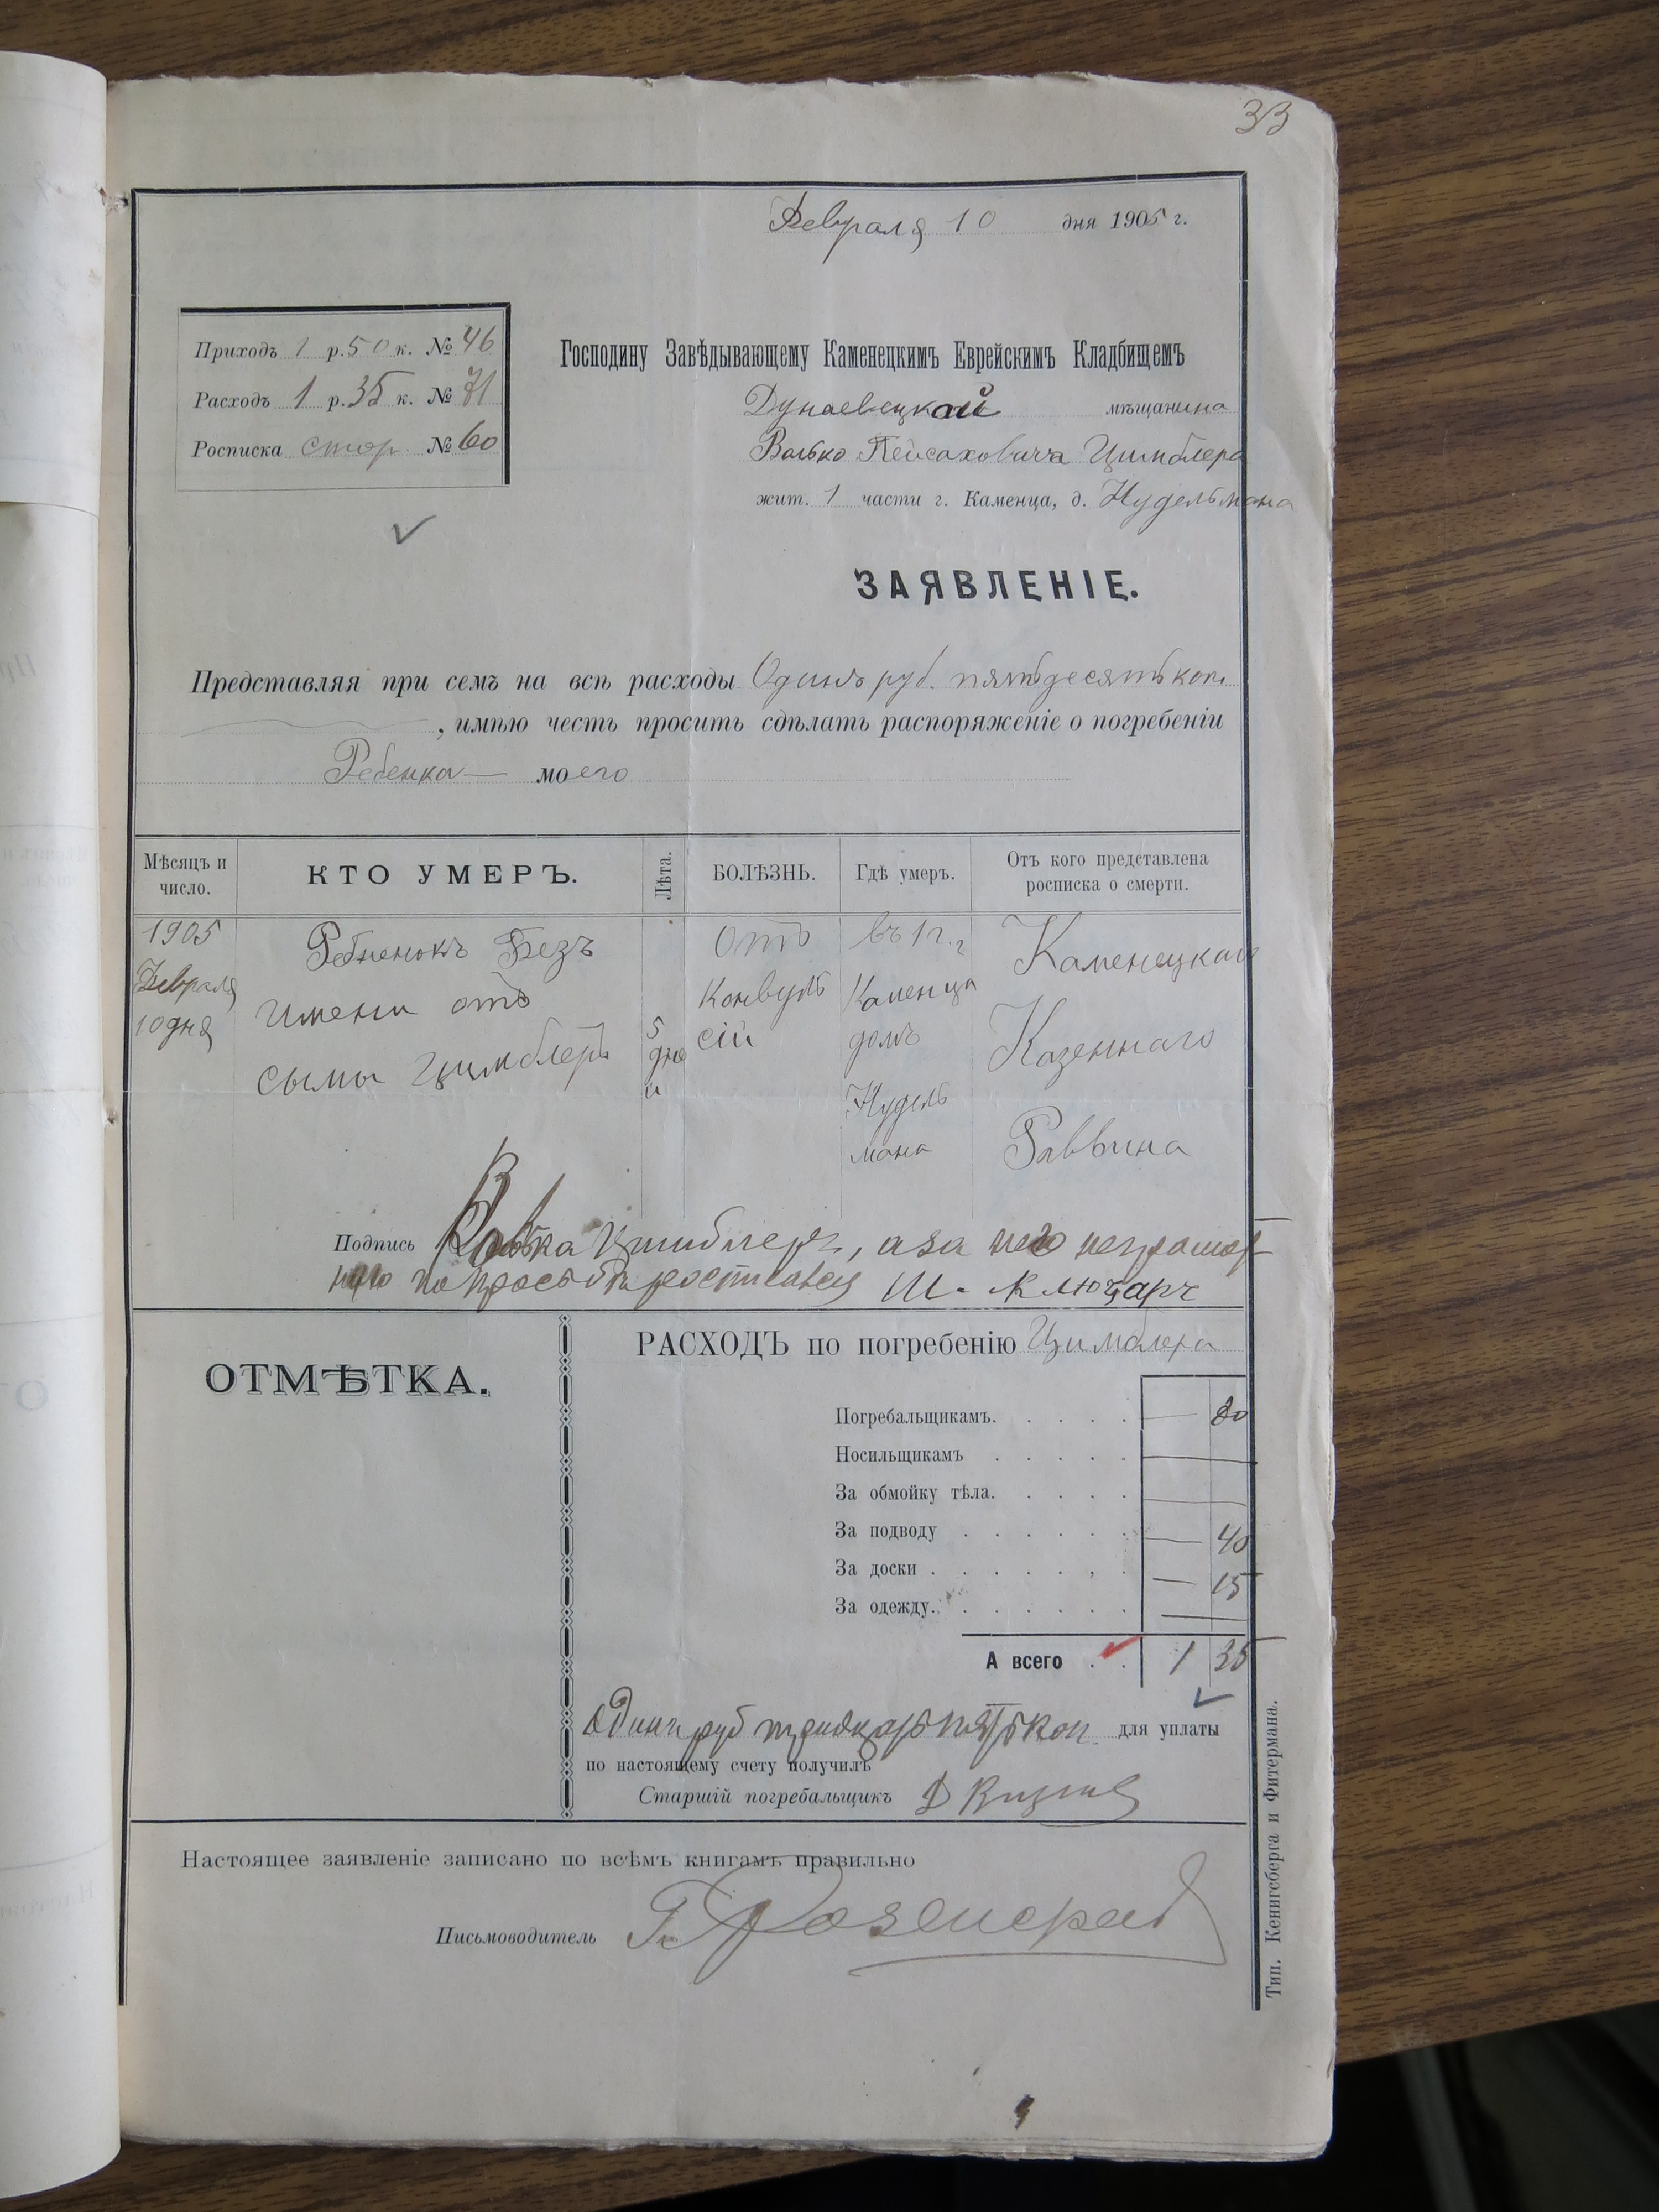 33
Февраля 10 дня 1905 г.
Приходъ 1 р. 50 к. № 46
Расходъ 1 р. 35 к. № 71
Росписка стор. № 60
Господину Завѣдывающему Каменецкимъ Еврейскимъ Кладбищемъ
Дунаевецкой мѣщанина
Волько Пейсаховича Цимблера
жит. 1 части г. Каменца, д. Нудельмана
ЗАЯВЛЕНІЕ.
Представляя при семъ на всѣ расходы Одинъ руб. пятьдесятъ коп.
, имѣю честь просить сдѣлать распоряженіе о погребеніи
Ребенка моего
Мѣсяцъ и число.
КТО УМЕРЪ.
Лѣта.
БОЛѢЗНЬ.
Гдѣ умеръ.
Отъ кого представлена росписка о смерти.
1905
Февраля
10 дня
Ребненокъ Безъ
имени отъ
Цимблеръ
5
дне
й
Отъ
Конвуль
сій
въ 1 ч. г.
Каменца
домъ
Нудель
мана
Каменецкаго
Казеннаго
Раввина
Подпись Цимблеръ, а за него неграмот
наго по просьбѣ росписался Ш. Ключаръ
ОТМѢТКА.
РАСХОДЪ по погребенію Цимблера
Погребальщикамъ. — 80
Носильщикамъ —
За обмойку тѣла. —
За подводу — 40
За доски — 15
За одежду. —
А всего 1 35
Одинъ руб тридцать пять коп. для уплаты
по настоящему счету получилъ
Старшій погребальщикъ
Настоящее заявленіе записано по всѣмъ книгамъ правильно
Письмоводитель
Тип. Кенигсберга и Фитермана.